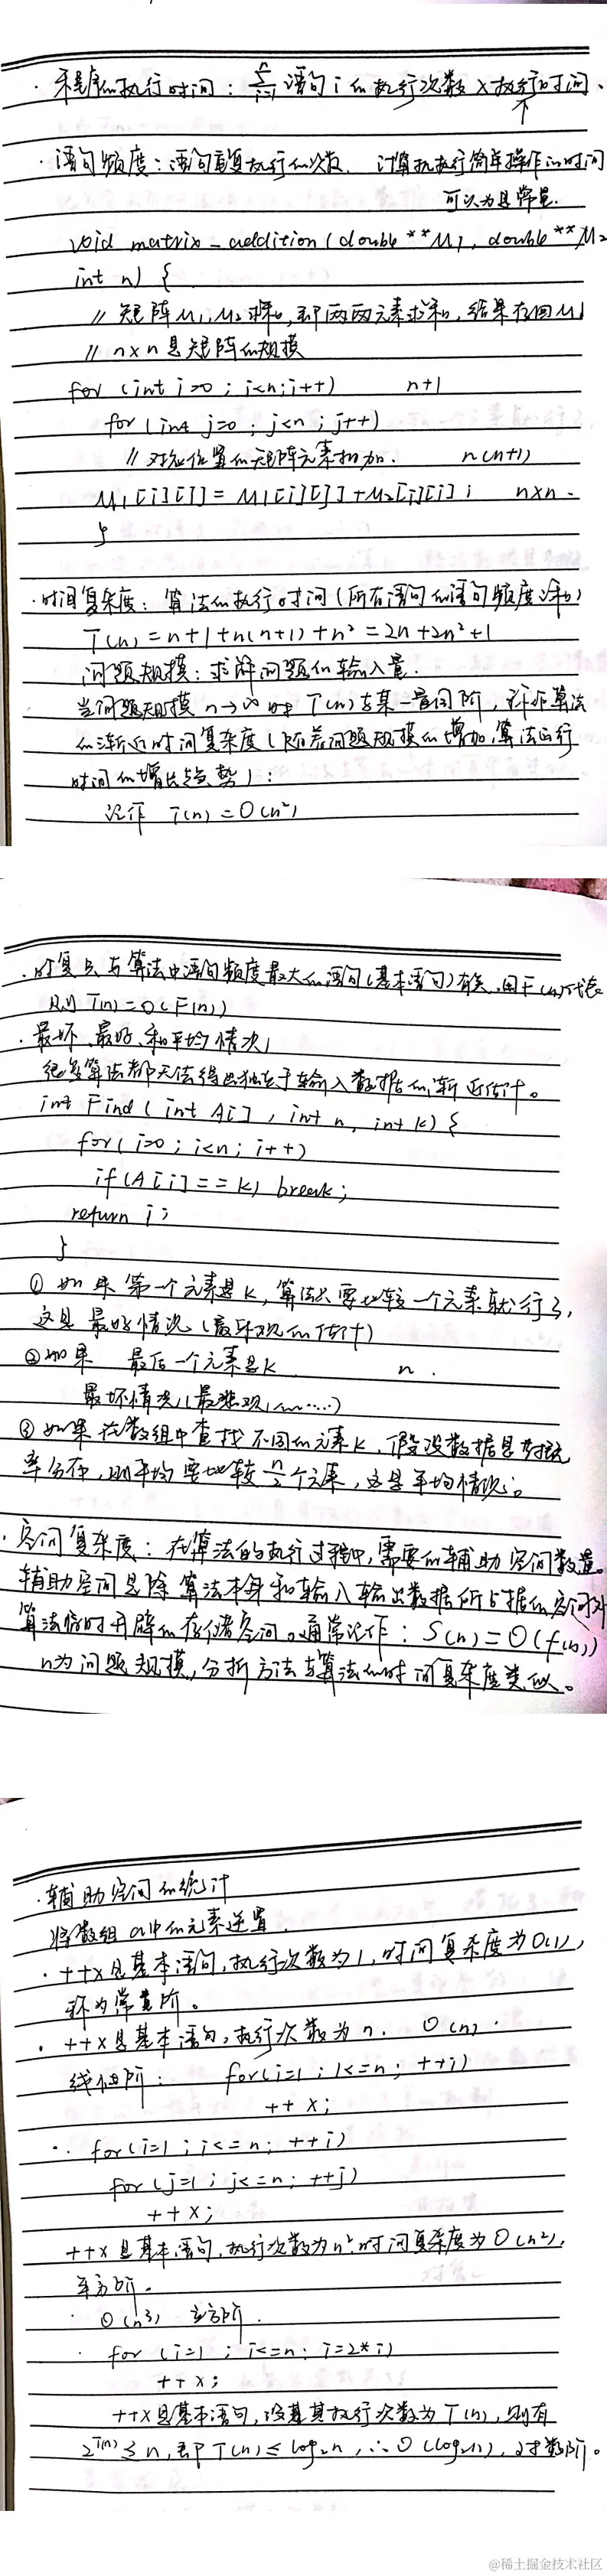 · 程序的执行时间：∑ i=1 n 语句 i 的执行次数 × 执行时间.
↑
· 语句频度：语句重复执行的次数. 计算机执行简单操作的时间
可以为是常量.
void matrix_addition (double **M1, double **M2
int n) {
// 矩阵M1,M2求和,即两两元素求和,结果存回M1
// n×n是矩阵的规模
for (int i=0 ; i<n; i++) n+1
for (int j=0 ; j<n ; j++)
// 对应位置的矩阵元素相加. n(n+1)
M1[i][j] = M1[i][j] + M2[i][j] ; n×n.
}
· 时间复杂度：算法的执行时间(所有语句的语句频度之和)
T(n) = n+1+n(n+1)+n² = 2n+2n²+1
问题规模：求解问题的输入量.
当问题规模 n→∞ 时 T(n)与某一量同阶, 称作算法
的渐近时间复杂度(随着问题规模的增加,算法运行
时间的增长趋势)：
记作 T(n) = O(n²)
· 时复只与算法中语句频度最大的语句(基本语句)有关.用F(n)代表
则 T(n) = O(F(n))
· 最坏、最好、和平均情况
很多算法都无法得出独立于输入数据的渐近估计。
int Find ( int A[] , int n, int k) {
for( i=0 ; i<n; i++)
if(A[i] == k) break;
return i;
}
① 如果第一个元素是k, 算法只要比较一个元素就行了,
这是最好情况(最乐观的估计)
②如果 最后一个元素是k n .
最坏情况(最悲观的……)
③ 如果在数组中查找不同的元素k, 假设数据是等概
率分布, 则平均要比较 n/2 个元素, 这是平均情况。
· 空间复杂度：在算法的执行过程中,需要的辅助空间数量。
辅助空间是除算法本身和输入输出数据所占据的空间外
算法临时开辟的存储空间。通常记作：S(n) = O(f(n))
n为问题规模, 分析方法与算法的时间复杂度类似。
· 辅助空间的统计
将数组a中的元素逆置.
· ++x是基本语句,执行次数为1,时间复杂度为O(1),
称为常量阶。
· ++x是基本语句,执行次数为n. O(n).
线性阶： for(i=1 ; i<=n; ++i)
++x;
· for(i=1 ; i<=n; ++i)
for(j=1; j<=n; ++j)
++x;
++x是基本语句,执行次数为n².时间复杂度为O(n²),
平方阶。
· O(n³) 立方阶.
· for (i=1 ; i<=n; i=2*i)
++x;
++x是基本语句,设其执行次数为T(n),则有
2^T(n) ≤ n,即T(n) ≤ log₂n, ∴ O(log₂n),对数阶。
@稀土掘金技术社区